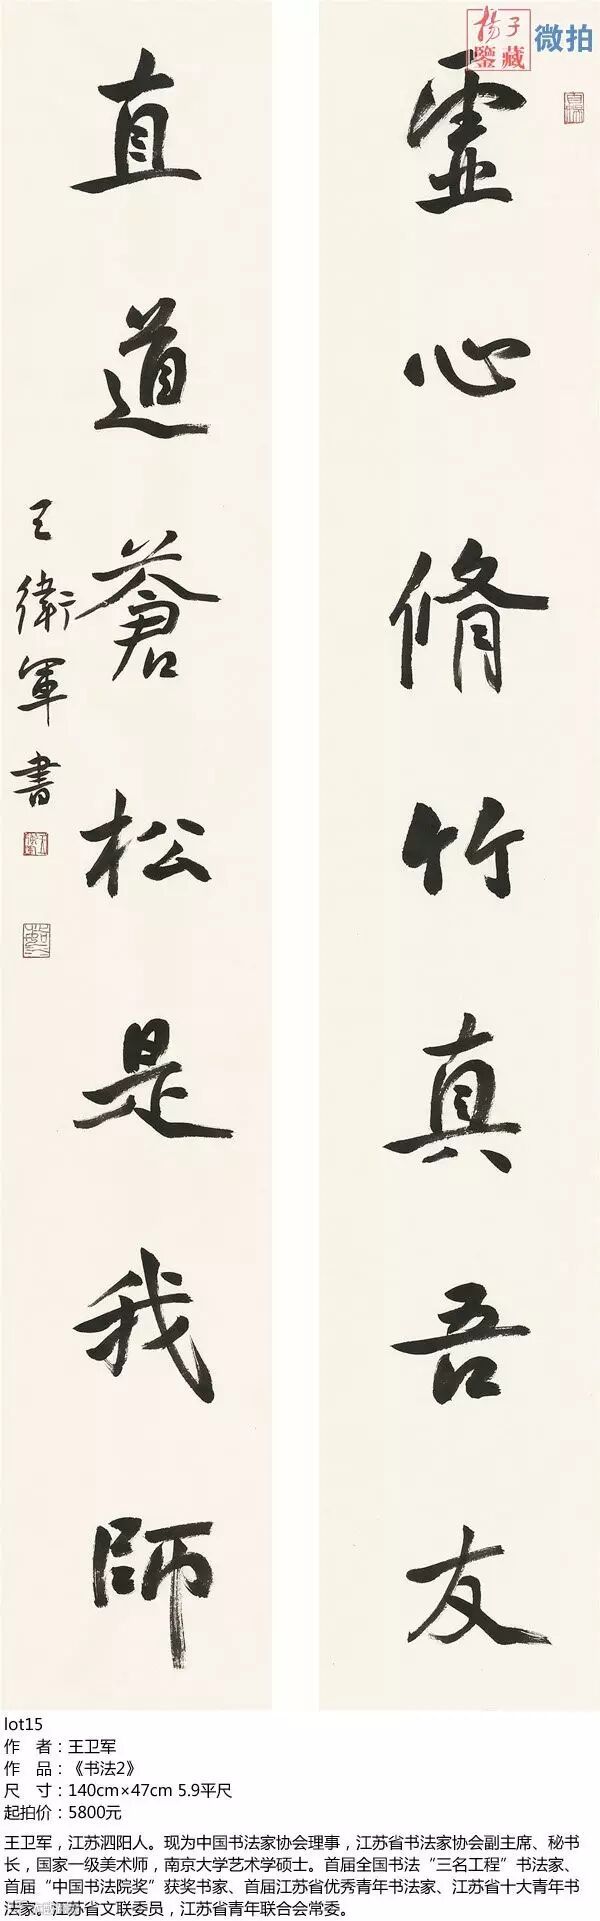 揚子
鑒藏
微拍
虛心脩竹真吾友
直道蒼松是我師
王衛軍書
lot15
作 者：王卫军
作 品：《书法2》
尺 寸：140cm×47cm 5.9平尺
起拍价：5800元
王卫军，江苏泗阳人。现为中国书法家协会理事，江苏省书法家协会副主席、秘书
长，国家一级美术师，南京大学艺术学硕士。首届全国书法“三名工程”书法家、
首届“中国书法院奖”获奖书家、首届江苏省优秀青年书法家、江苏省十大青年书
法家。江苏省文联委员，江苏省青年联合会常委。